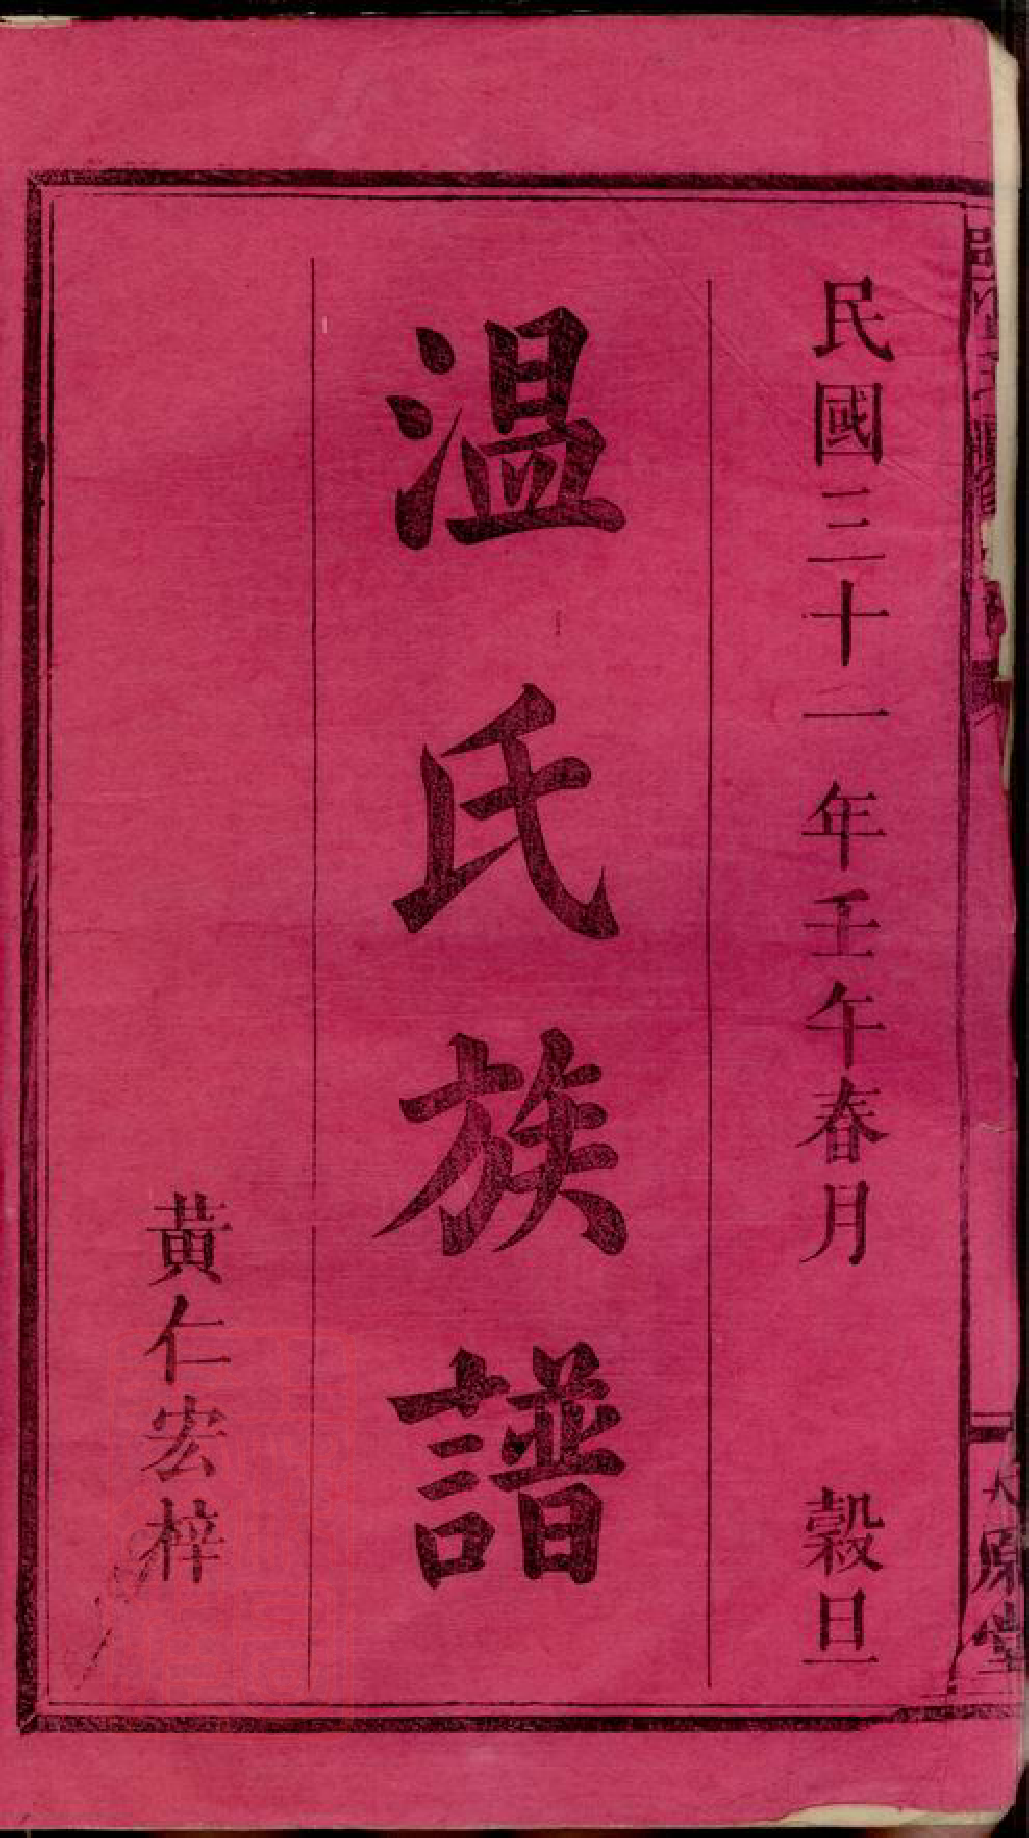 民國三十一年壬午春月 穀旦
温氏族譜
黃仁宏梓
原堂